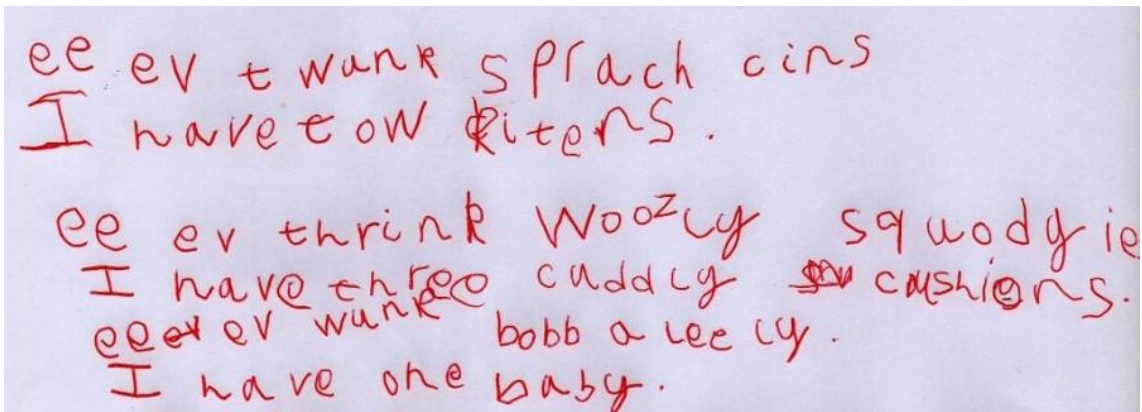 ee ev twunk splach cins
I have tow kitens.
ee ev thrink woozly squodgie
I have three cuddly cushions.
ee ev wunk bobb a leely.
I have one baby.